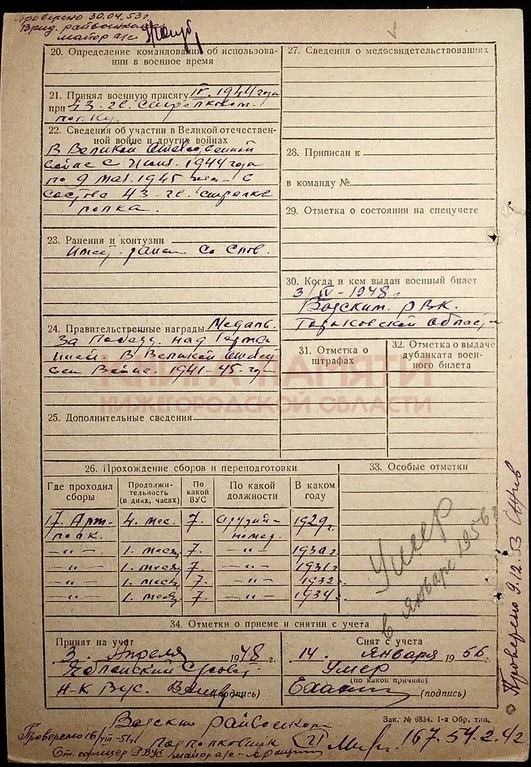 Проверено 30.04.53г.
майор а/с
20. Определение командования об использовании в военное время
21. Принял военную присягу IV. 1944 года
при 43. гв. стрелковом.
полку.
22. Сведения об участии в Великой отечественной войне и других войнах
В Великой Отечественной
войне с июня. 1944 года
по 9 мая. 1945 г. в
составе 43. гв. стрелко
полка.
23. Ранения и контузии
со слов.
24. Правительственные награды Медаль.
За Победу над Герма
нией В Великой Отечес
Войне. 1941-45. году
КНИГА ПАМЯТИ
НИЖЕГОРОДСКОЙ ОБЛАСТИ
25. Дополнительные сведения
27. Сведения о медосвидетельствованиях
28. Приписан к
в команду №
29. Отметка о состоянии на спецучете
30. Когда и кем выдан военный билет
3/IV-1948г
Ватским. РВК.
Горьковской области
31. Отметка о штрафах
32. Отметка о выдаче дубликата военного билета
26. Прохождение сборов и переподготовки
Где проходил сборы
Продолжительность (в днях, часах)
По какой ВУС
По какой должности
В каком году
17. Арт. полк. 4. мес. 7. Орудий- номер. 1929г.
—„— 1. месяц 7. —„— 1930г.
—„— 1. месяц 7. —„— 1931г.
—„— 1. месяц 7. —„— 1932г.
—„— 1. месяц 7. —„— 1934г.
33. Особые отметки
Умер
6 января 1956г
34. Отметки о приеме и снятии с учета
Принят на учет
3. Апреля 1948 г.
Н-к Вус.
(подпись)
Снят с учета
14 января 1956
Умер
(по какой причине)
(подпись)
Ватский райвоенком
подполковник
Зак. № 6834. 1-я Обр. тип.
Проверено 16/VIII-51г
Ст. офицер РВК майор а/с
167-54-2-42
Проверено 9.12.53